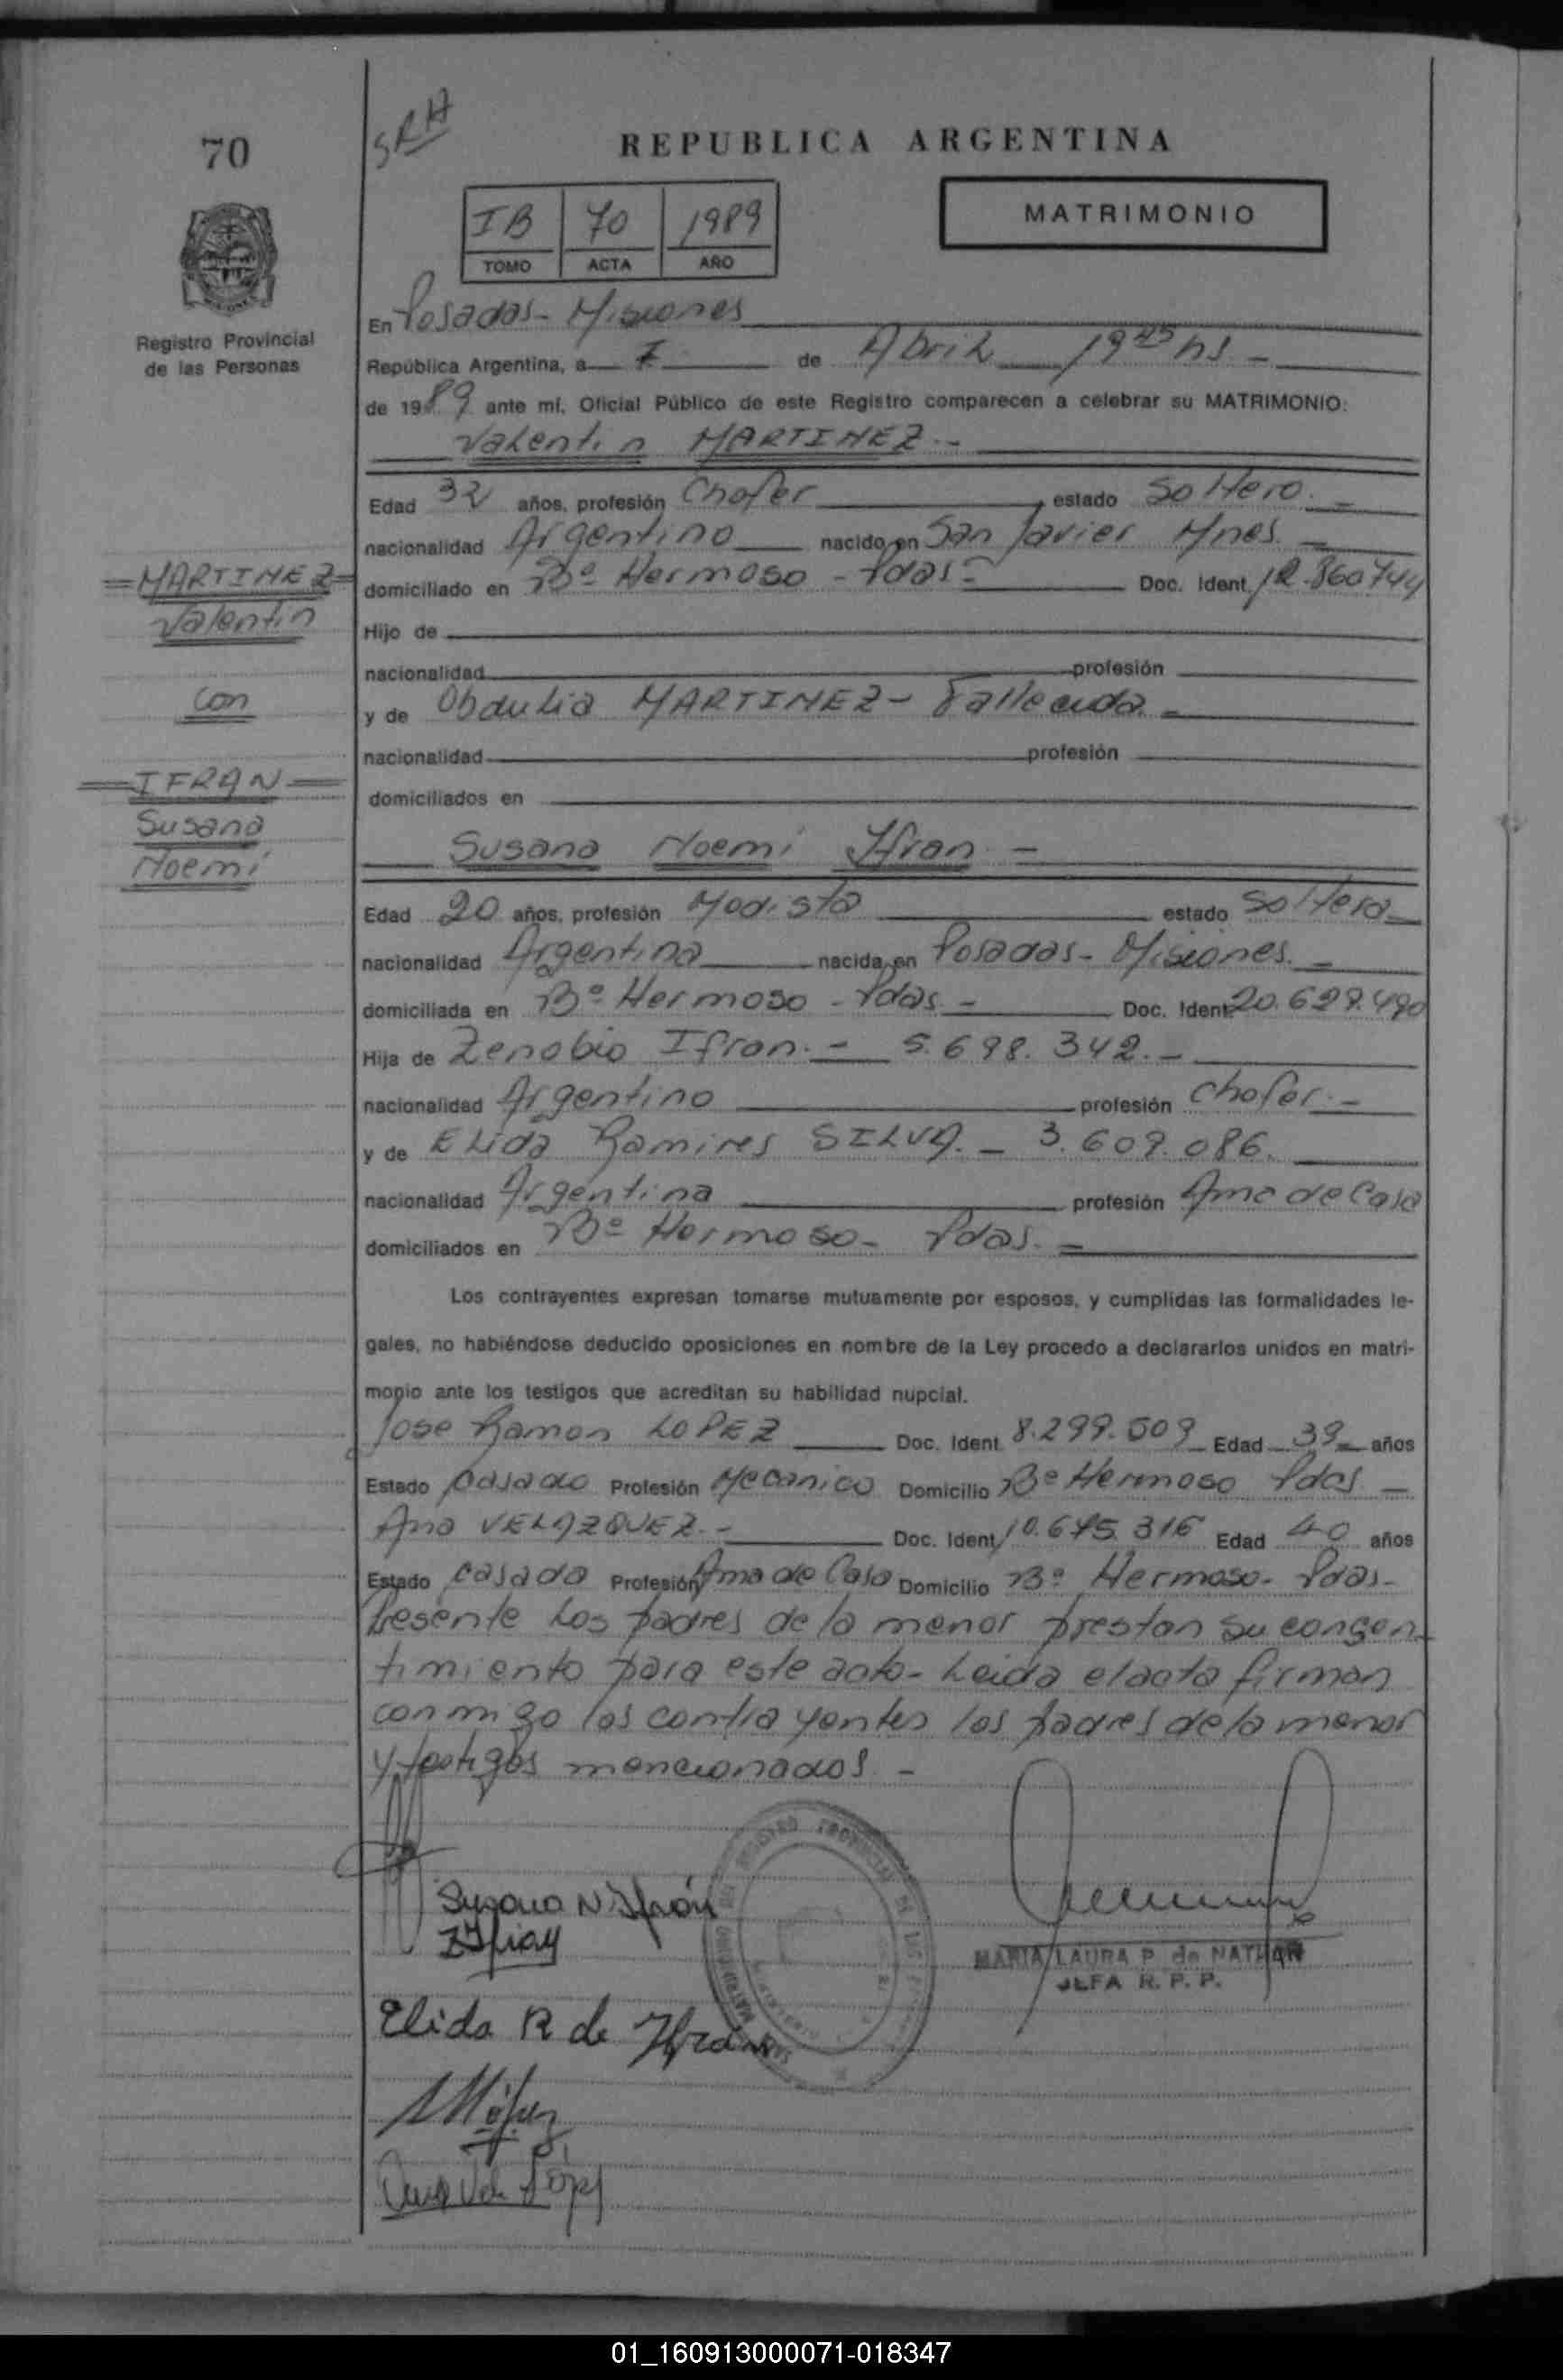 70
SRH
REPUBLICA ARGENTINA
IB 70 1989
TOMO ACTA AÑO
MATRIMONIO
Registro Provincial
de las Personas
En Posadas - Misiones
República Argentina, a 7 de Abril 19 45 hs -
de 1989 ante mí, Oficial Público de este Registro comparecen a celebrar su MATRIMONIO:
Valentin MARTINEZ.-
Edad 32 años, profesión Chofer, estado Soltero.-
nacionalidad Argentino nacido en San Javier Mnes. -
=MARTINEZ=
Valentin
con
=IFRAN=
Susana
Noemi
domiciliado en Bº Hermoso - Pdas - Doc. Ident. 12.860744
Hijo de
nacionalidad profesión
y de Obdulia MARTINEZ - Fallecida. -
nacionalidad profesión
domiciliados en
Susana Noemi Ifran -
Edad 20 años, profesión Modista estado Soltera -
nacionalidad Argentina nacida en Posadas - Misiones. -
domiciliada en Bº Hermoso - Pdas. - Doc. Ident. 20.629.490
Hija de Zenobio Ifran. - 5.698.342. -
nacionalidad Argentino profesión Chofer. -
y de Elida Ramires SILVA. - 3.609.086.
nacionalidad Argentina profesión Ama de Casa
domiciliados en Bº Hermoso - Pdas. -
Los contrayentes expresan tomarse mutuamente por esposos, y cumplidas las formalidades le-
gales, no habiéndose deducido oposiciones en nombre de la Ley procedo a declararlos unidos en matri-
monio ante los testigos que acreditan su habilidad nupcial.
Jose Ramon LOPEZ Doc. Ident. 8.299.509 Edad 39 años
Estado Casado Profesión Mecanico Domicilio Bº Hermoso Pdas -
Ana VELAZQUEZ. - Doc. Ident. 10.675.316 Edad 40 años
Estado Casada Profesión Ama de Casa Domicilio Bº Hermoso - Pdas -
Presente los padres de la menor prestan su consen-
timiento para este acto - Leida el acta firman
conmigo los contrayentes los padres de la menor
y testigos mencionados. -
Susana N. Ifrán
Z Ifran
Elida R de Ifrán
MARIA LAURA P. de NATHAN
JEFA R. P. P.
01_160913000071-018347